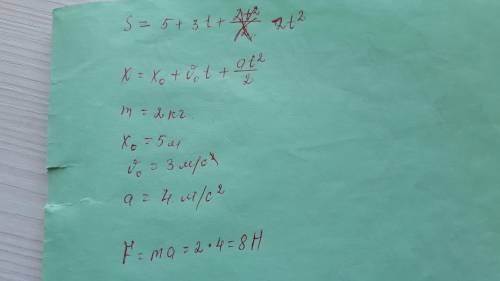 S = 5 + 3t + 2t²
x = x₀ + v₀t + at²/2
m = 2 кг
x₀ = 5 м
v₀ = 3 м/с
a = 4 м/с²
F = ma = 2 · 4 = 8 Н